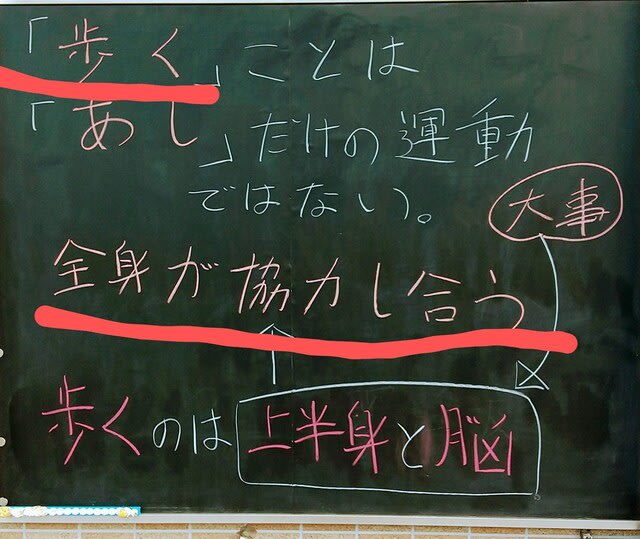 「歩く」ことは
「あし」だけの運動
ではない。
大事
全身が協力し合う
歩くのは上半身と脳